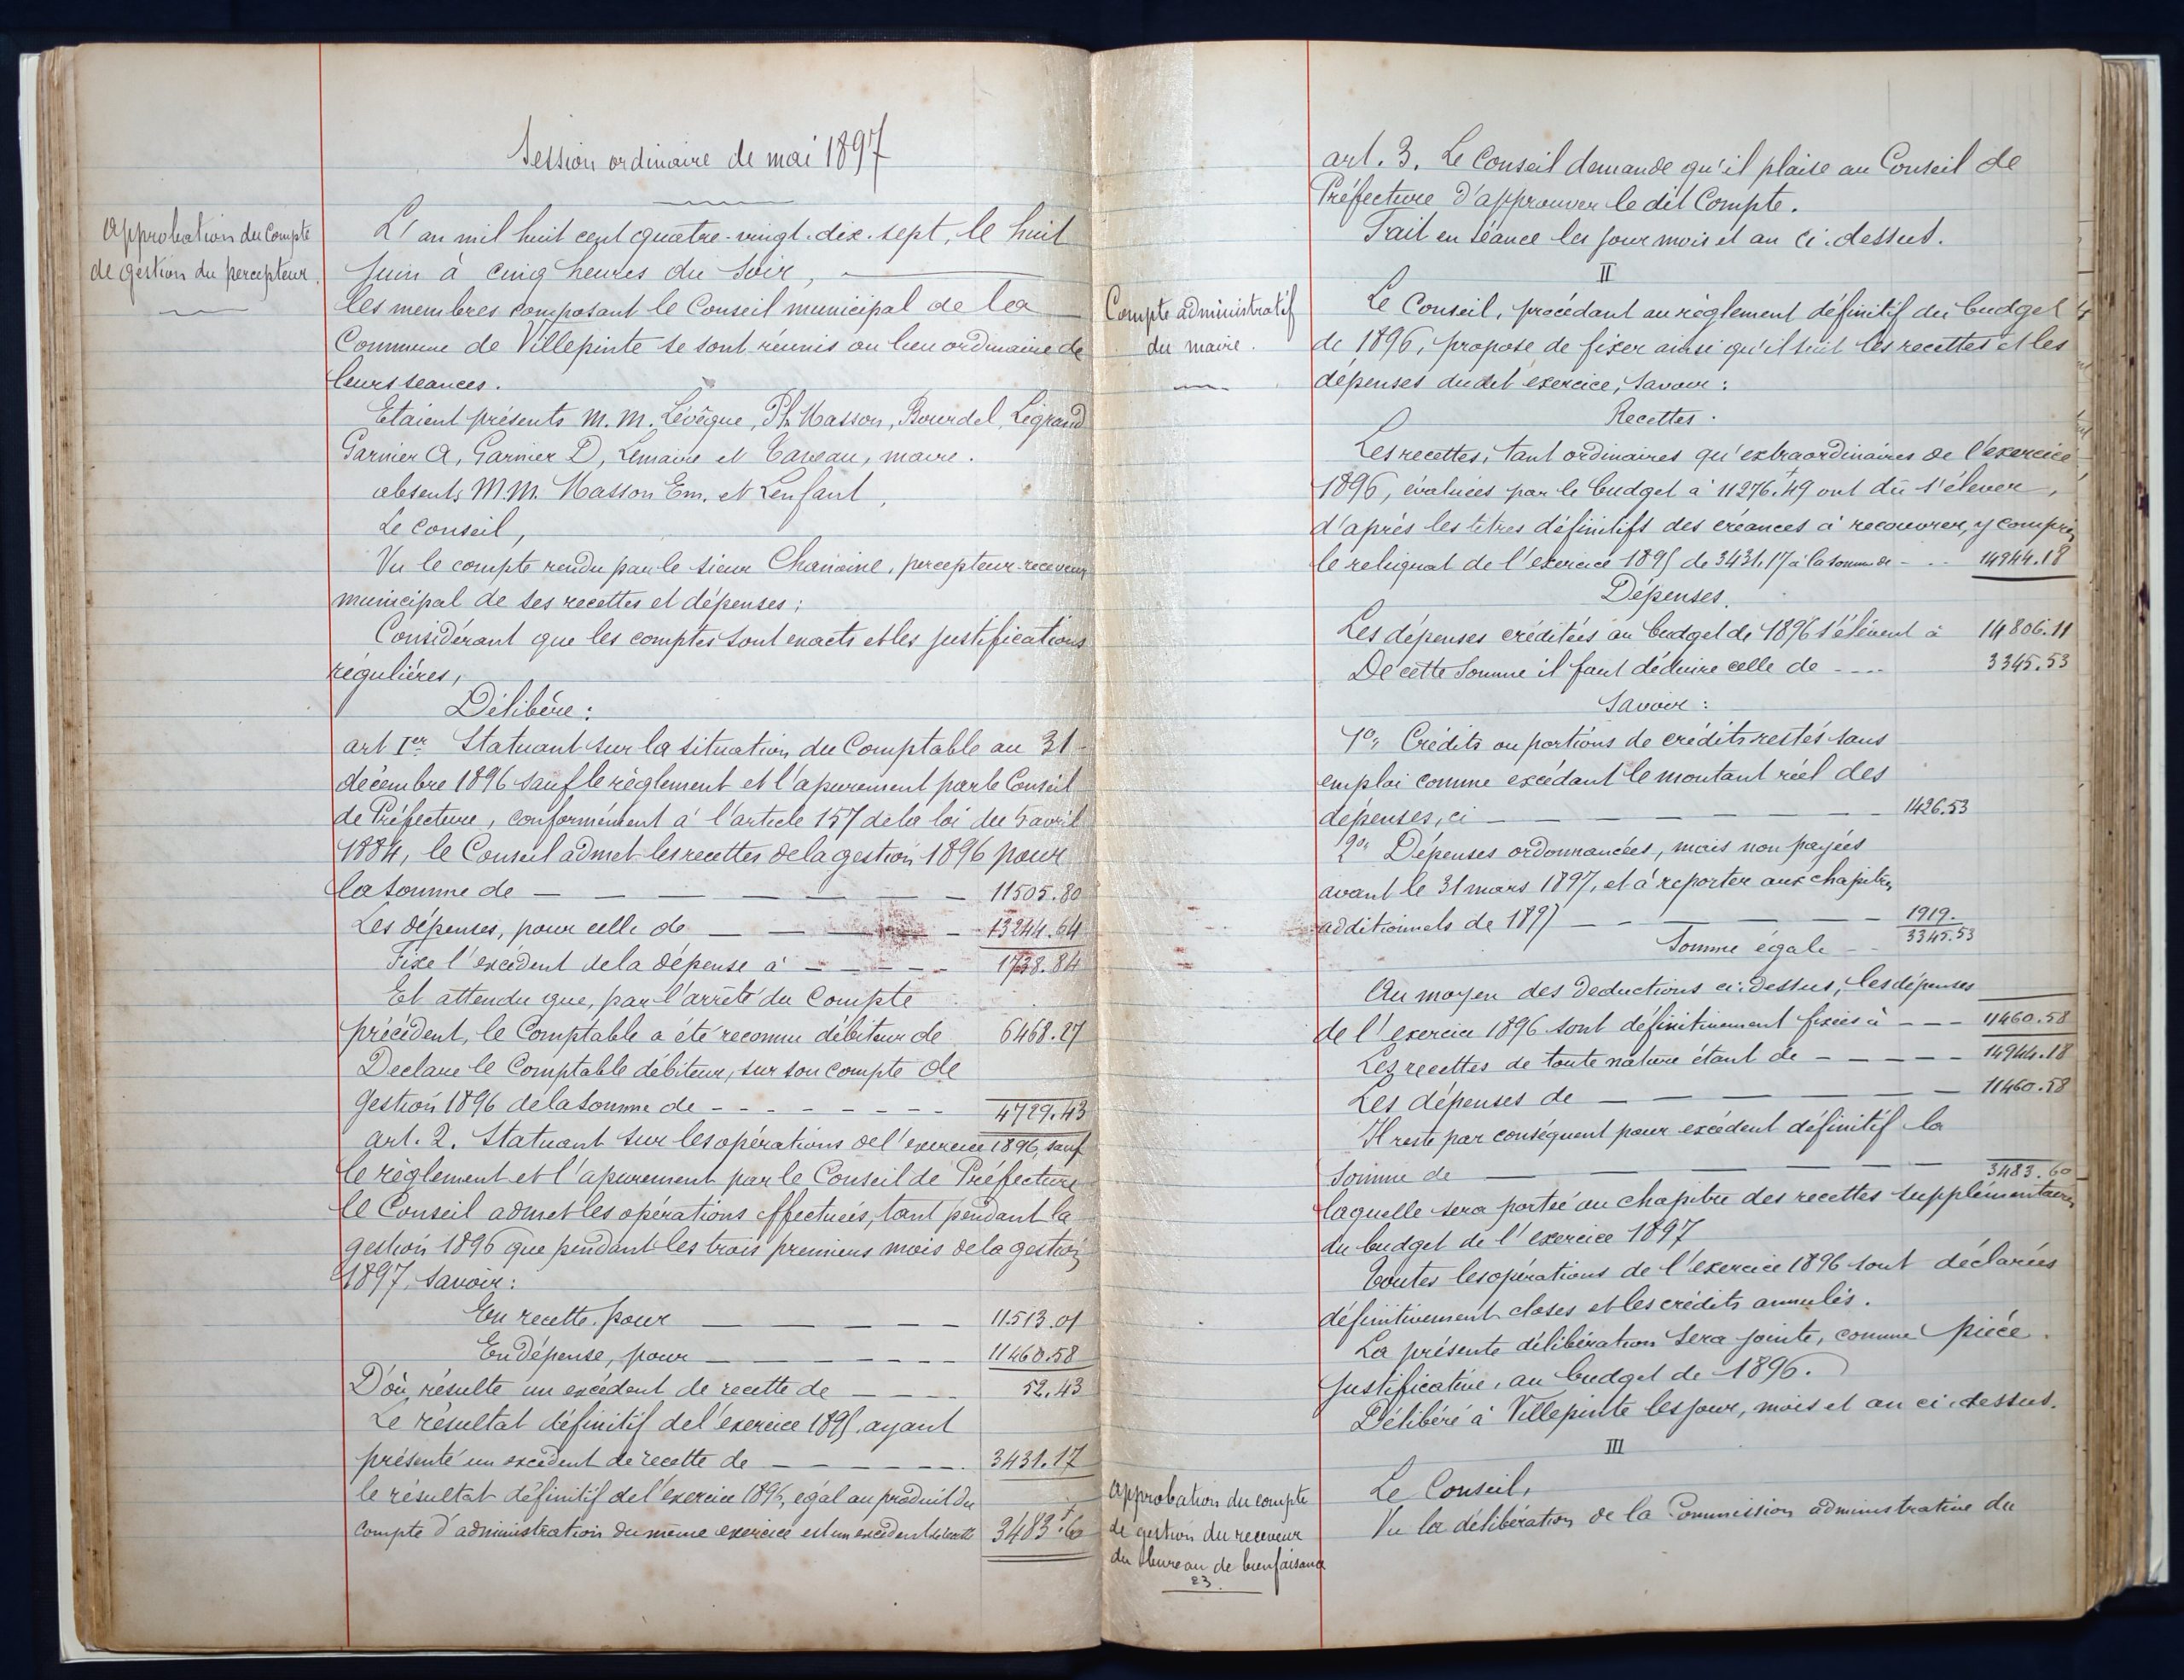 Session ordinaire de mai 1897
Approbation du compte
de gestion du percepteur.
L'an mil huit cent quatre-vingt-dix-sept, le huit
Juin à cinq heures du soir,
les membres composant le Conseil municipal de la
Commune de Villepinte se sont réunis au lieu ordinaire de
leurs seances.
Etaient présents M.M. Lévêque, Ph. Masson, Bourdel, Legrand
Garnier A, Garnier D, Lemaire et Taveau, maire.
absents M.M. Masson Em. et Lenfant,
Le Conseil,
Vu le compte rendu par le sieur Chanoine, percepteur-receveur
municipal de ses recettes et dépenses;
Considérant que les comptes sont exacts et les justifications
régulières,
Délibère:
art. 1er Statuant sur la situation du Comptable au 31
décembre 1896 sauf le règlement et l'apurement par le Conseil
de Préfecture, conformément à l'article 157 de la loi du 5 avril
1884, le Conseil admet les recettes de la gestion 1896 pour
la somme de 11505.80
Les dépenses, pour celle de 13244.64
Fixe l'excédent de la dépense à 1738.84
Et attendu que, par l'arrêté du Compte
précédent, le Comptable a été reconnu débiteur de 6468.27
Declare le Comptable débiteur, sur son compte de
Gestion 1896 de la somme de 4729.43
art. 2. Statuant sur les opérations de l'exercice 1896, sauf
le règlement et l'apurement par le Conseil de Préfecture
le Conseil admet les opérations effectuées, tant pendant la
gestion 1896 que pendant les trois premiers mois de la gestion
1897, savoir:
En recette pour 11.513.01
En dépense, pour 11460.58
D'où résulte un excédent de recette de 52.43
Le résultat définitif de l'exercice 1895 ayant
présenté un excédent de recette de 3431.17
le résultat définitif de l'exercice 1896, égal au produit du
compte d'administration du même exercice est un excédent de recette 3483.60
art. 3. Le Conseil demande qu'il plaise au Conseil de
Préfecture d'approuver le dit Compte.
Fait en séance les jour mois et an ci-dessus.
II
Compte administratif
du maire.
Le Conseil, procédant au règlement définitif du budget
de 1896, propose de fixer ainsi qu'il suit les recettes et les
dépenses dudit exercice, savoir:
Recettes.
Les recettes, tant ordinaires qu'extraordinaires de l'exercice
1896, évaluées par le budget à 11276.49 ont dû s'élever,
d'après les titres définitifs des créances à recouvrer, y compris
le reliquat de l'exercice 1895 de 3431.17 à la somme de 14944.18
Dépenses.
Les dépenses créditées au budget de 1896 s'élèvent à 14806.11
De cette somme il faut déduire celle de 3345.53
Savoir:
1o, Crédits ou portions de crédits restés sans
emploi comme excédant le montant réel des
dépenses, ci 1426.53
2o, Dépenses ordonnancées, mais non payées
avant le 31 mars 1897, et à reporter aux chapitres
additionnels de 1897 1919.
Somme égale 3345.53
Au moyen des deductions ci-dessus, les dépenses
de l'exercice 1896 sont définitivement fixées à 11460.58
Les recettes de toute nature étant de 14944.18
Les dépenses de 11460.58
Il reste par conséquent pour excédent définitif la
somme de 3483.60
laquelle sera portée au chapitre des recettes supplémentaires
du budget de l'exercice 1897
Toutes les opérations de l'exercice 1896 sont déclarées
définitivement closes et les crédits annulés.
La présente délibération sera jointe, comme pièce
justificative, au budget de 1896.
Délibéré à Villepinte les jour, mois et an ci-dessus.
III
Approbation du compte
de gestion du receveur
du bureau de bienfaisance
23.
Le Conseil,
Vu la délibération de la Commission administrative du